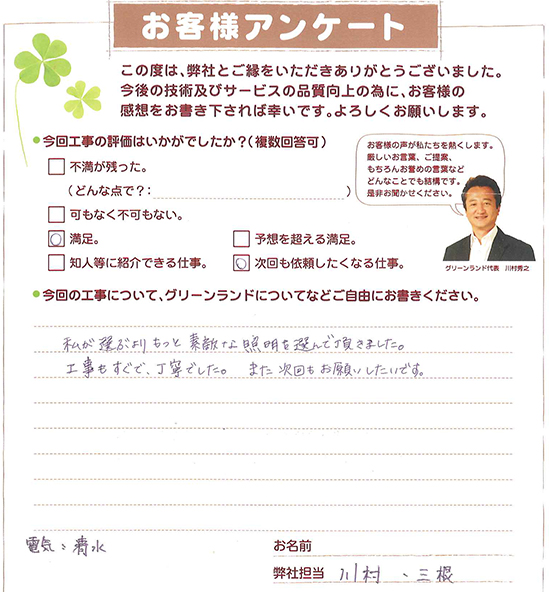 お客様アンケート
この度は、弊社とご縁をいただきありがとうございました。
今後の技術及びサービスの品質向上の為に、お客様の
感想をお書き下されば幸いです。よろしくお願いします。
●今回工事の評価はいかがでしたか？（複数回答可）
不満が残った。
（どんな点で？： ）
可もなく不可もない。
満足。
予想を超える満足。
知人等に紹介できる仕事。
次回も依頼したくなる仕事。
お客様の声が私たちを熱くします。
厳しいお言葉、ご提案、
もちろんお誉めの言葉など
どんなことでも結構です。
是非お聞かせください。
グリーンランド代表 川村秀之
●今回の工事について、グリーンランドについてなどご自由にお書きください。
私が選ぶよりもっと素敵な照明を選んで頂きました。
工事もすぐで、丁寧でした。 また次回もお願いしたいです。
電気：清水
お名前
弊社担当 川村 、三根